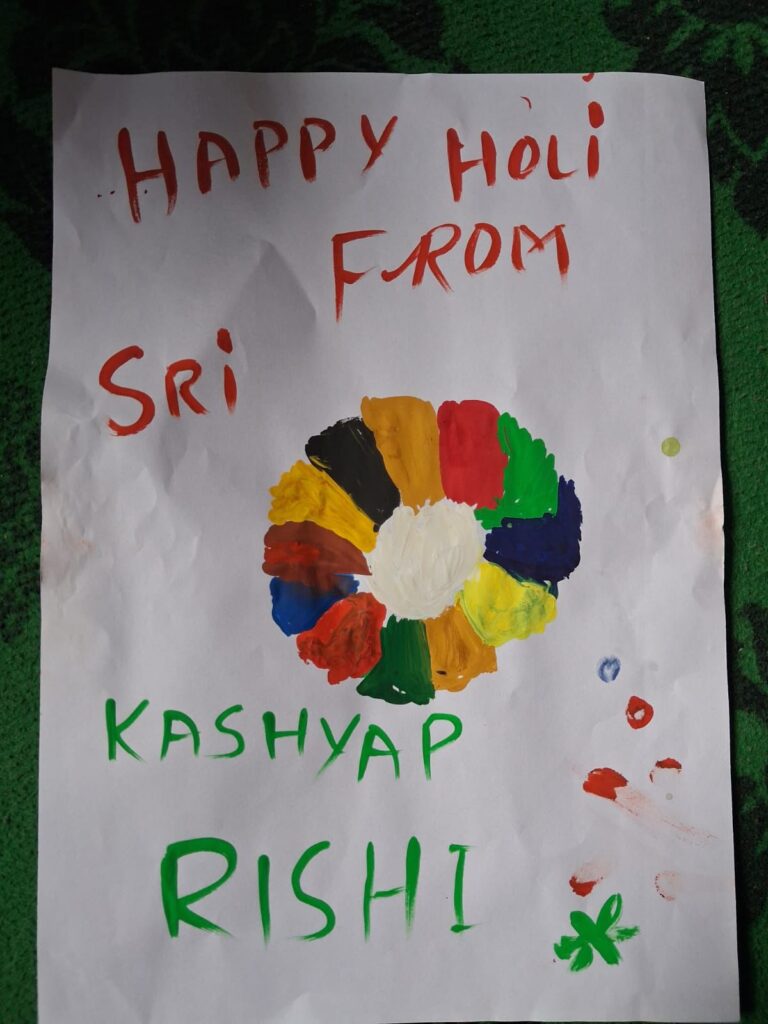 HAPPY HOLi
FROM
SRi
KASHYAP
RISHI